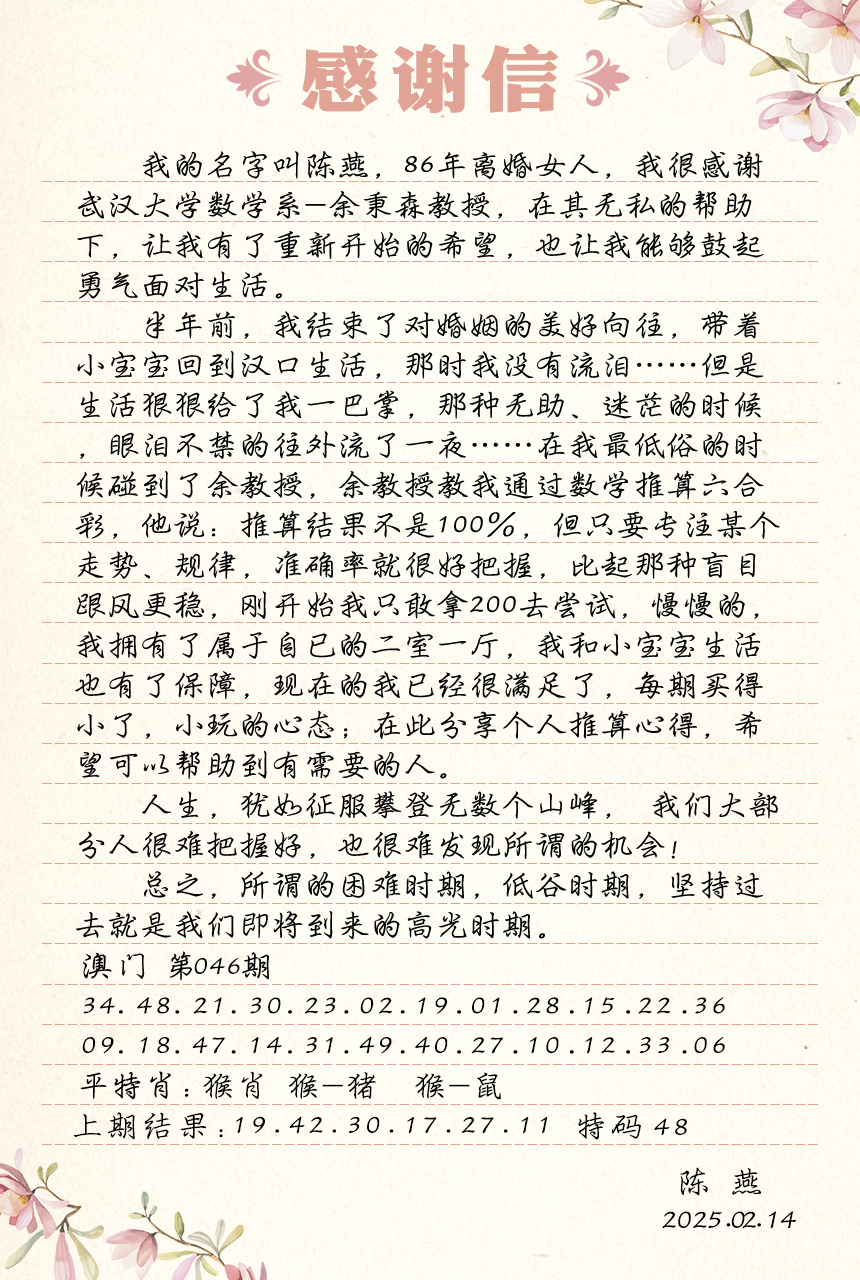 感谢信
我的名字叫陈燕，86年离婚女人，我很感谢
武汉大学数学系—余秉森教授，在其无私的帮助
下，让我有了重新开始的希望，也让我能够鼓起
勇气面对生活。
半年前，我结束了对婚姻的美好向往，带着
小宝宝回到汉口生活，那时我没有流泪……但是
生活狠狠给了我一巴掌，那种无助、迷茫的时候
，眼泪不禁的往外流了一夜……在我最低俗的时
候碰到了余教授，余教授教我通过数学推算六合
彩，他说：推算结果不是100%，但只要专注某个
走势、规律，准确率就很好把握，比起那种盲目
跟风更稳，刚开始我只敢拿200去尝试，慢慢的，
我拥有了属于自已的二室一厅，我和小宝宝生活
也有了保障，现在的我已经很满足了，每期买得
小了，小玩的心态；在此分享个人推算心得，希
望可以帮助到有需要的人。
人生，犹如征服攀登无数个山峰， 我们大部
分人很难把握好，也很难发现所谓的机会！
总之，所谓的困难时期，低谷时期，坚持过
去就是我们即将到来的高光时期。
澳门 第046期
34.48.21.30.23.02.19.01.28.15.22.36
09.18.47.14.31.49.40.27.10.12.33.06
平特肖：猴肖 猴—猪 猴—鼠
上期结果：19.42.30.17.27.11 特码 48
陈 燕
2025.02.14